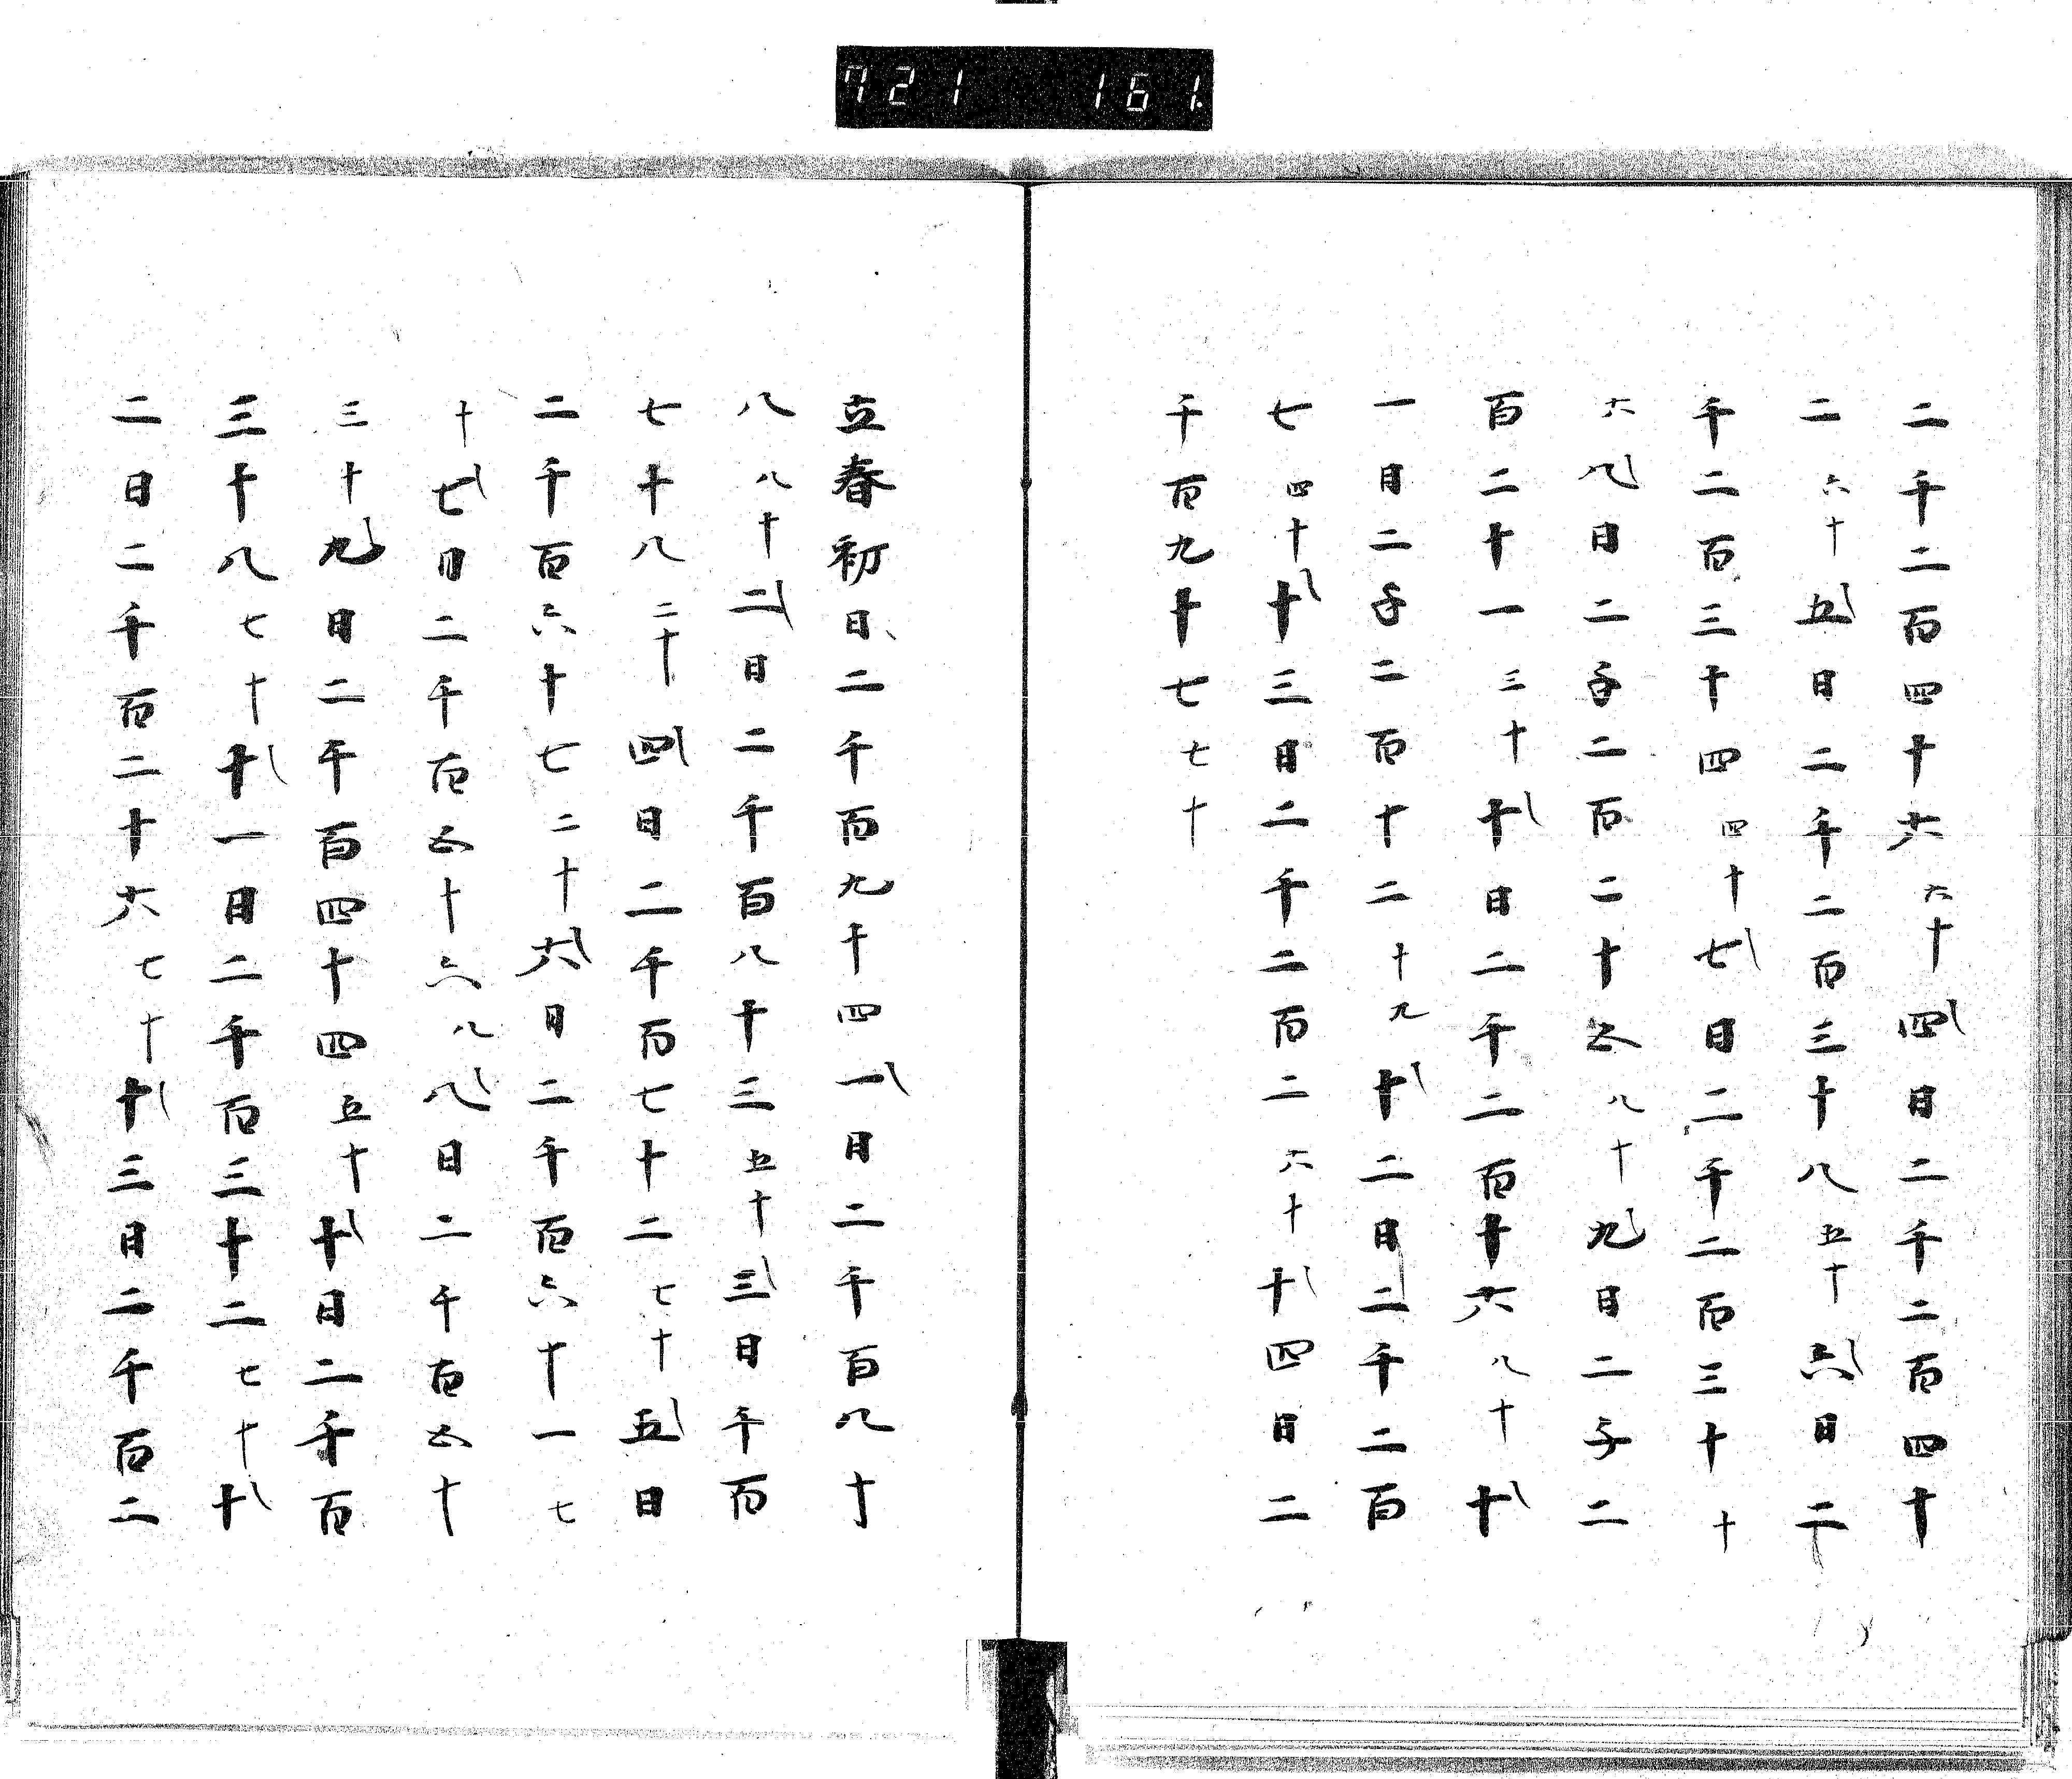 721 161
二千二百四十六六十四日二千二百四十
二六十五日二千二百三十八五十六日二
千二百三十四四十七日二千二百三十十
六八日二千二百二十五八十九日二千二
百二十一三十十日二千二百十六八十十
一日二千二百十二十九十二日二千二百
七四十十三日二千二百二六十十四日二
千百九十七七十
立春初日二千百九十四一日二千百八十
八八十二日二千百八十三五十三日千百
七十八二十四日二千百七十二七十五日
二千百六十七二十六日二千百六十一七
十七日二千百五十六八八日二千百五十
三十九日二千百四十四五十十日二千百
三十八七十十一日二千百三十二七十十
二日二千百二十六七十十三日二千百二